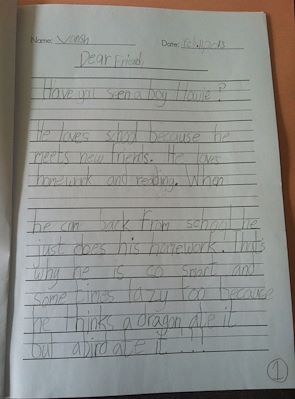 Name: Vansh Date:
Dear Friend,
Have you seen a boy
He loves school because he
meets new friends. He loves
homework and reading. When
he can back from school he
just does his homework. That's
why he is so smart and
some times lazy too because
he thinks a dragon ate it
but a bird ate it ...
1